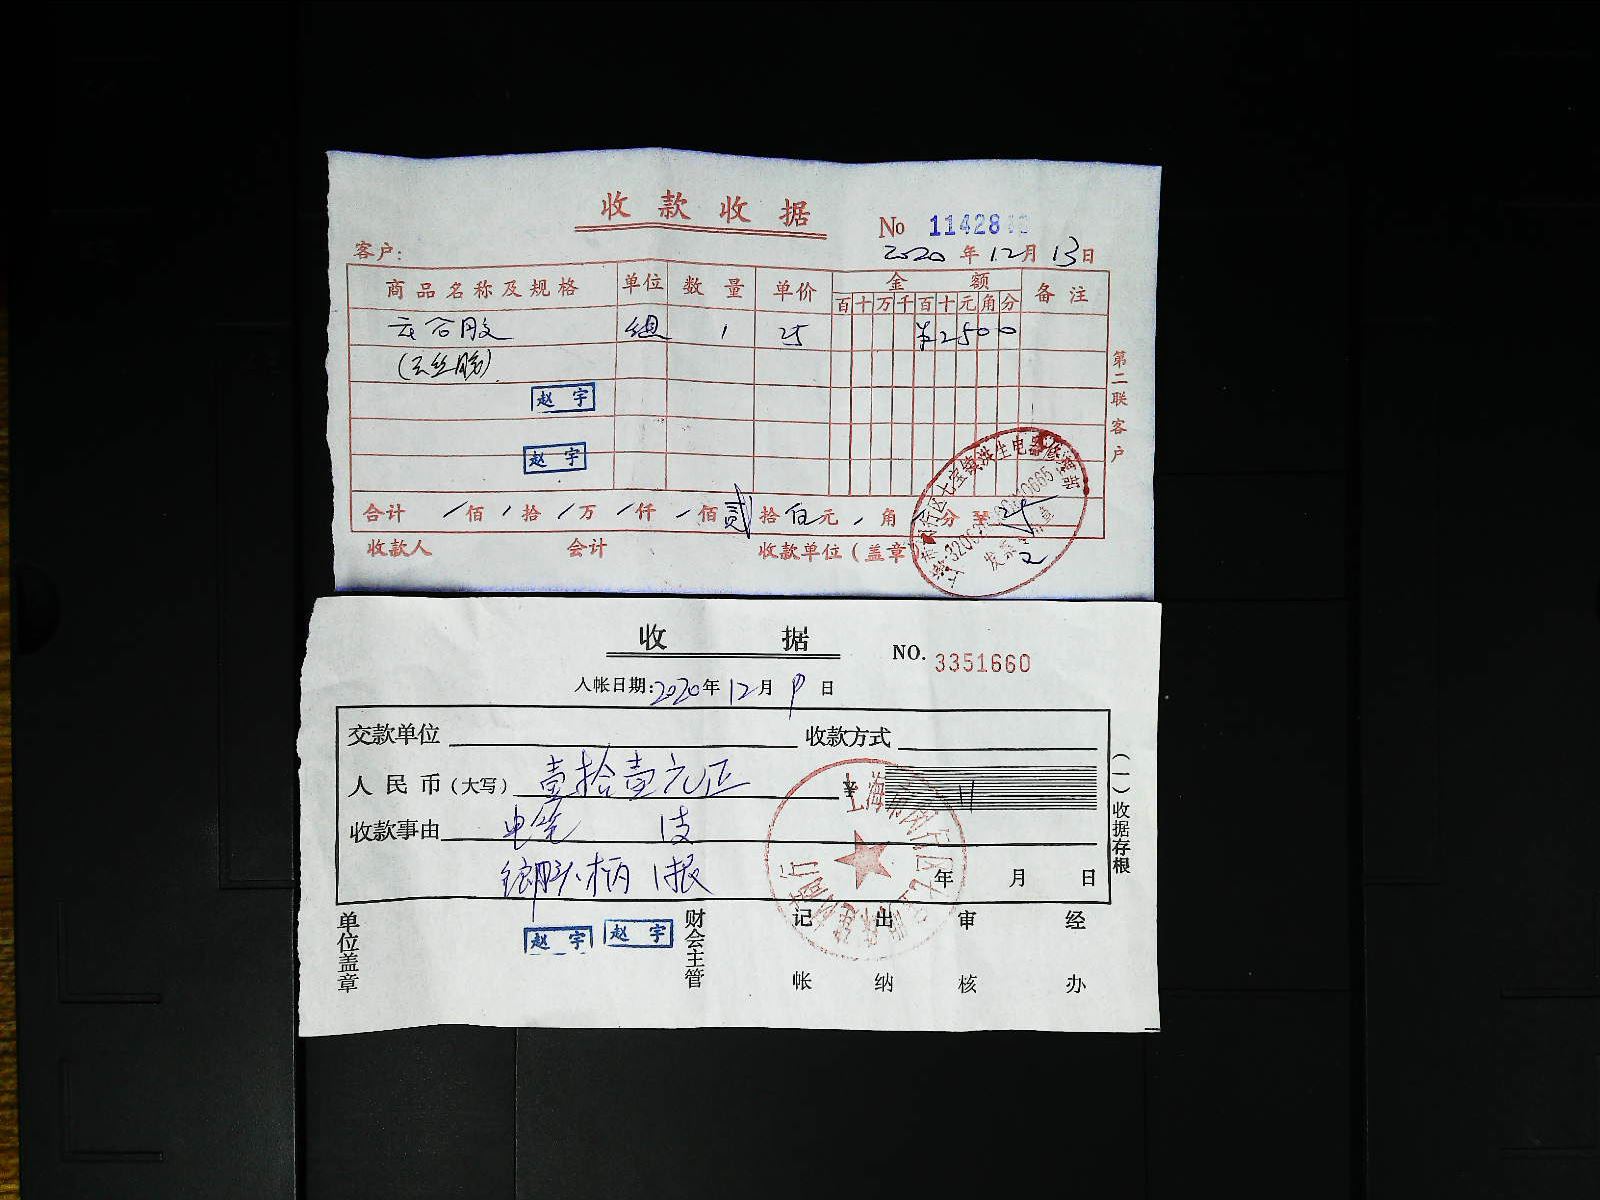 收款收据
No 11428
客户: 2020年12月13日
商品名称及规格 单位 数量 单价 金额 备注
百十万千百十元角分
组 1 25 ¥2500
赵宇
赵宇
合计 /佰/拾/万/仟/佰贰拾伍元/角 分
收款人 会计 收款单位(盖章
第二联客户
七宝镇洪生电器修理部
发票
收据
NO. 3351660
入帐日期:2020年12月9日
交款单位 收款方式
人民币(大写) 壹拾壹元正 ¥ 11
收款事由 电笔 1支
榔头柄 1根
年 月 日
(一)收据存根
单位盖章 赵宇 赵宇 财会主管 记帐 出纳 审核 经办
上海